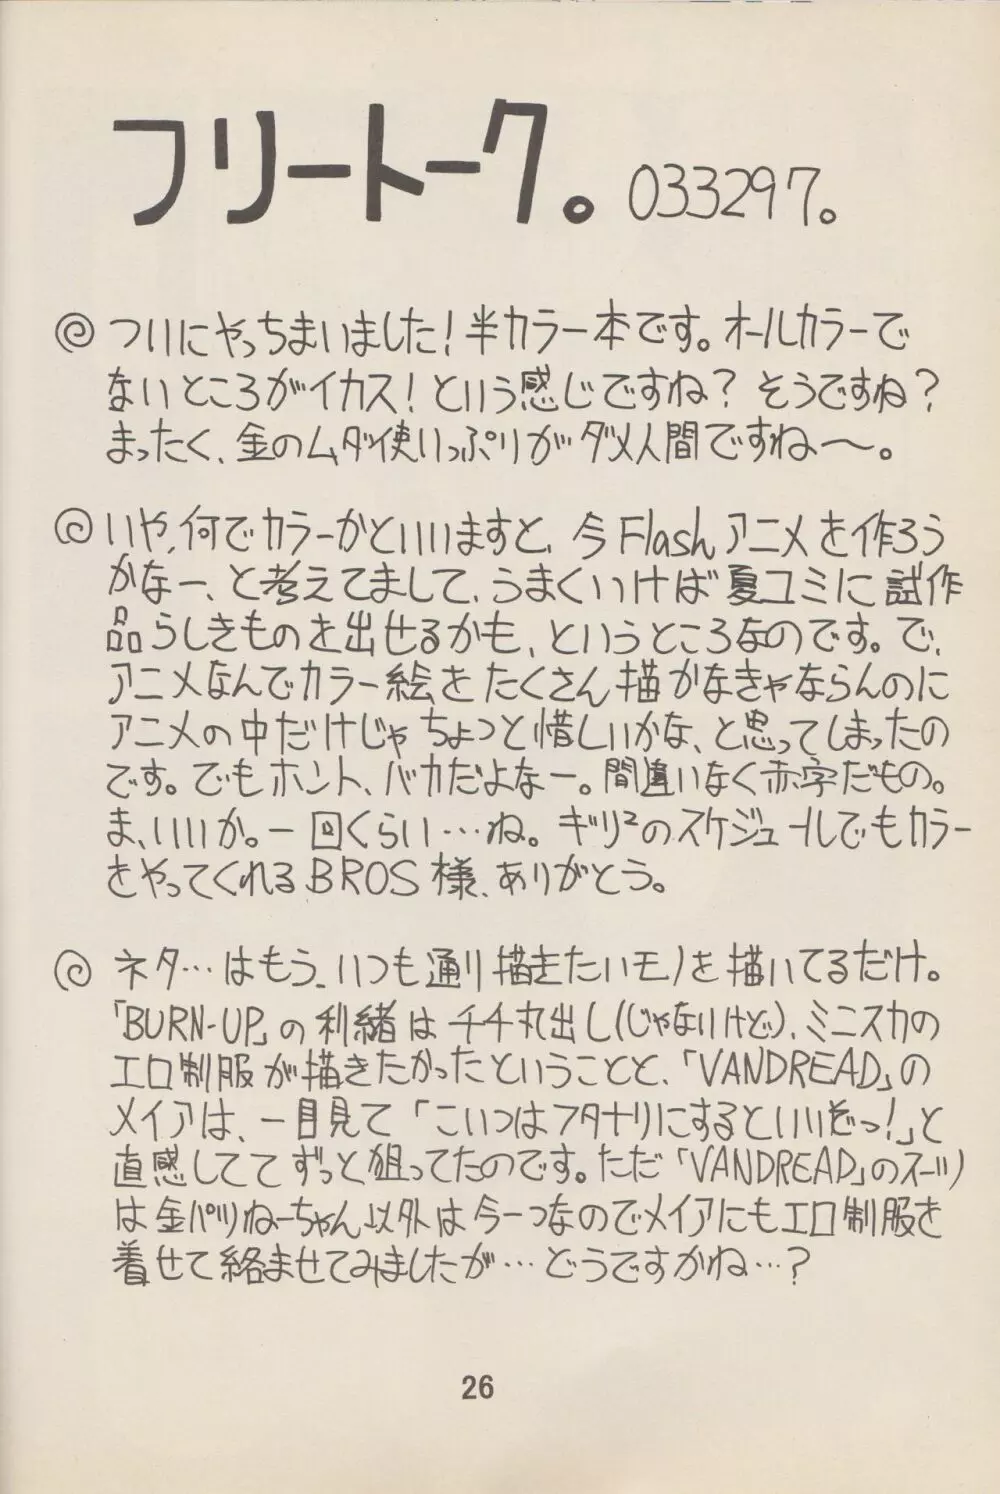 フリートーク。033297。
ついにやっちまいました！半カラー本です。オールカラーで
ないところがイカス！という感じですね？そうですね？
まったく、金のムダ使いっぷりがダメ人間ですね〜。
いや、何でカラーかといいますと、今Flashアニメを作ろう
かなー、と考えてまして、うまくいけば夏コミに試作
品らしきものを出せるかも、というところなのです。で、
アニメなんでカラー絵をたくさん描かなきゃならんのに
アニメの中だけじゃちょっと惜しいかな、と思ってしまったの
です。でもホント、バカだよなー。間違いなく赤字だもの。
ま、いいか。一回くらい…ね。ギリ²のスケジュールでもカラー
をやってくれるBROS様、ありがとう。
ネタ…はもう、いつも通り描きたいモノを描いてるだけ。
「BURN-UP」の利緒はチチ丸出し(じゃないけど)、ミニスカの
エロ制服が描きたかったということと、「VANDREAD」の
メイアは、一目見て「こいつはフタナリにするといいぞっ！」と
直感しててずっと狙ってたのです。ただ「VANDREAD」のスーツ
は金パツねーちゃん以外は今一つなのでメイアにもエロ制服を
着せて絡ませてみましたが…どうですかね…？
26